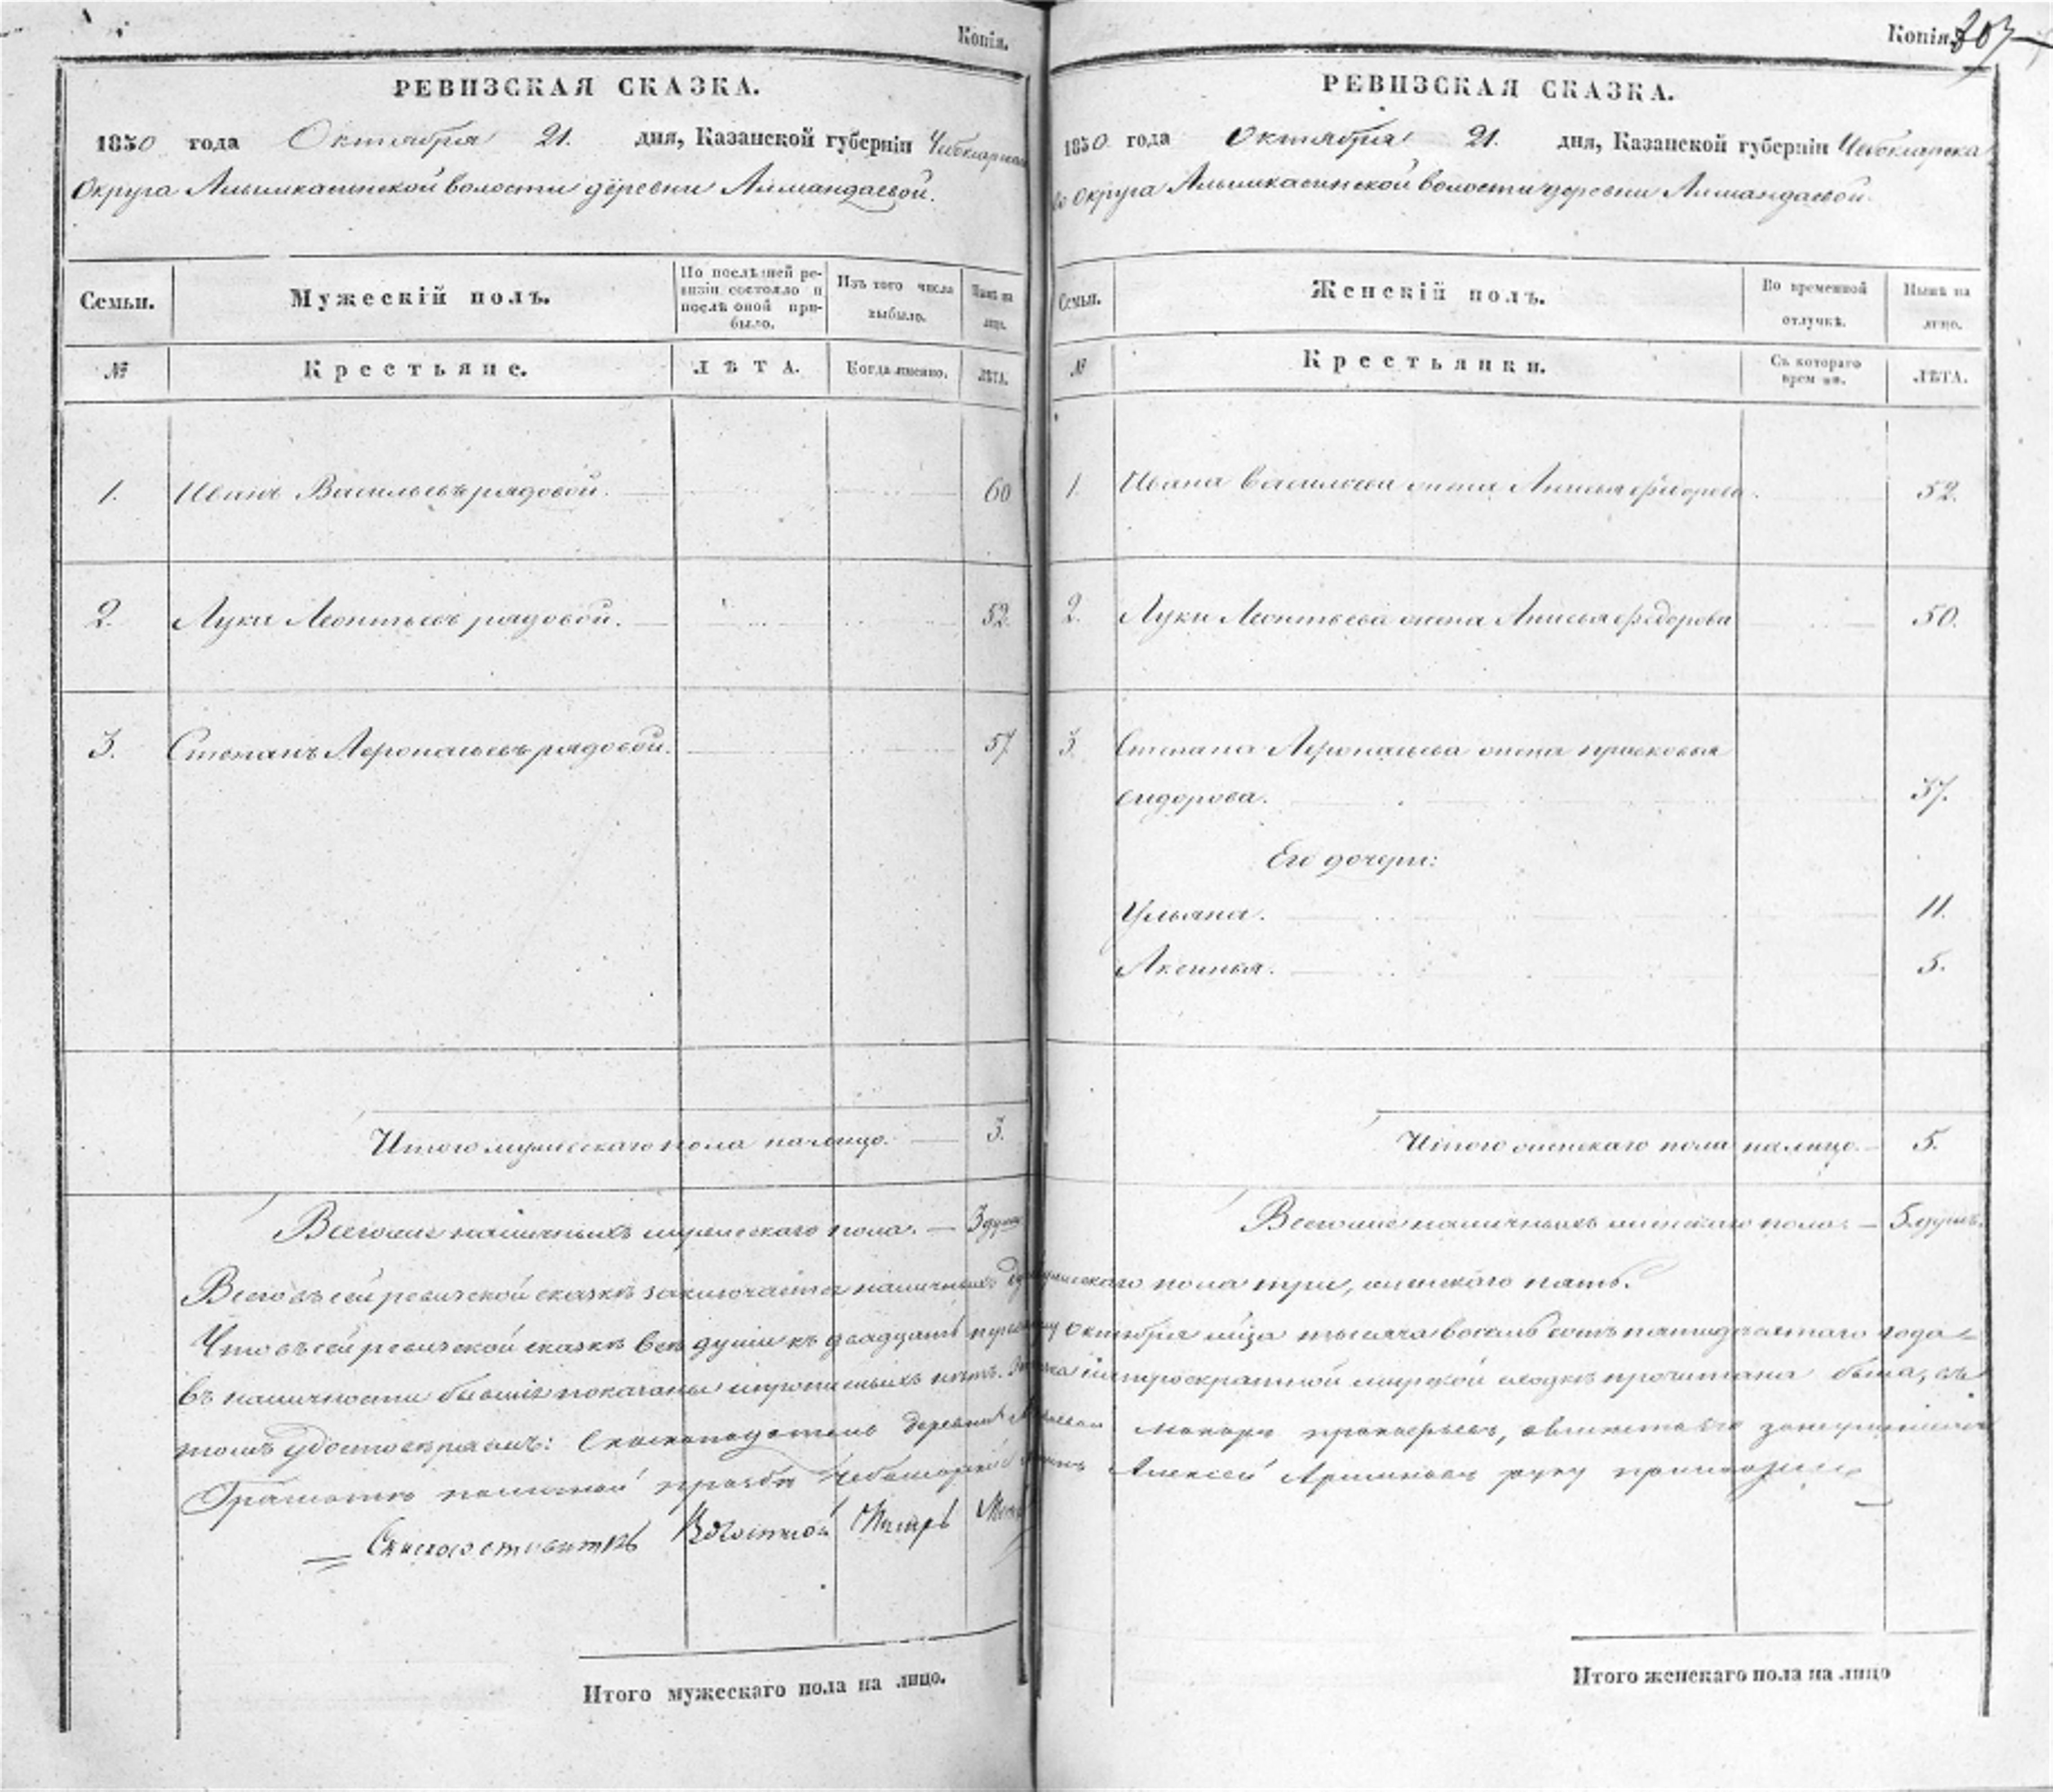 Копія.
РЕВИЗСКАЯ СКАЗКА.
1850 года Октября 21. дня, Казанской губерніи
Округа волости деревни
Семьи.
Мужескій полъ.
По послѣдней ре-
визіи состояло и
послѣ оной при-
было.
Изъ того числа
выбыло.
Нынѣ на
лицо.
№
Крестьяне.
ЛѢТА.
Когда именно.
ЛѢТА.
1. Иванъ Васильевъ рядовой. 60
2. Лука Леонтьевъ рядовой. 52.
3. Степанъ Афонасьевъ рядовой. 57
Итого мужескаго пола налицо. 3.
Всего наличныхъ мужескаго пола. 3 душ
Копія.
РЕВИЗСКАЯ СКАЗКА.
1850 года Октября 21. дня, Казанской губерніи Чебоксарска
го Округа волости деревни
Семьи.
Женскій полъ.
Во временной
отлучкѣ.
Нынѣ на
лицо.
№
Крестьянки.
Съ котораго
времени.
ЛѢТА.
1. Ивана Васильева жена Анисья Федорова. 52.
2. Луки Леонтьева жена Анисья Федорова 50.
3. Степана Афонасьева жена Прасковья
Сидорова. 37.
Его дочери:
Ульяна. 11.
Аксинья. 5.
Итого женскаго пола налицо. 5.
Всего наличныхъ женскаго пола. 5. душъ.
Всего въ сей ревизской сказкѣ заключается наличныхъ мужескаго пола три, женскаго пять.
Что въ сей ревизской сказкѣ всѣ души къ двадцать первому Октября тысяча восемь сотъ пятидесятаго года
въ наличности бывшіе показаны и прописныхъ нѣтъ. мирской сходкѣ прочитана была, въ
томъ удостовѣряемъ: деревни
Алексей руку приложилъ
Волостной
Итого мужескаго пола на лицо.
Итого женскаго пола на лицо